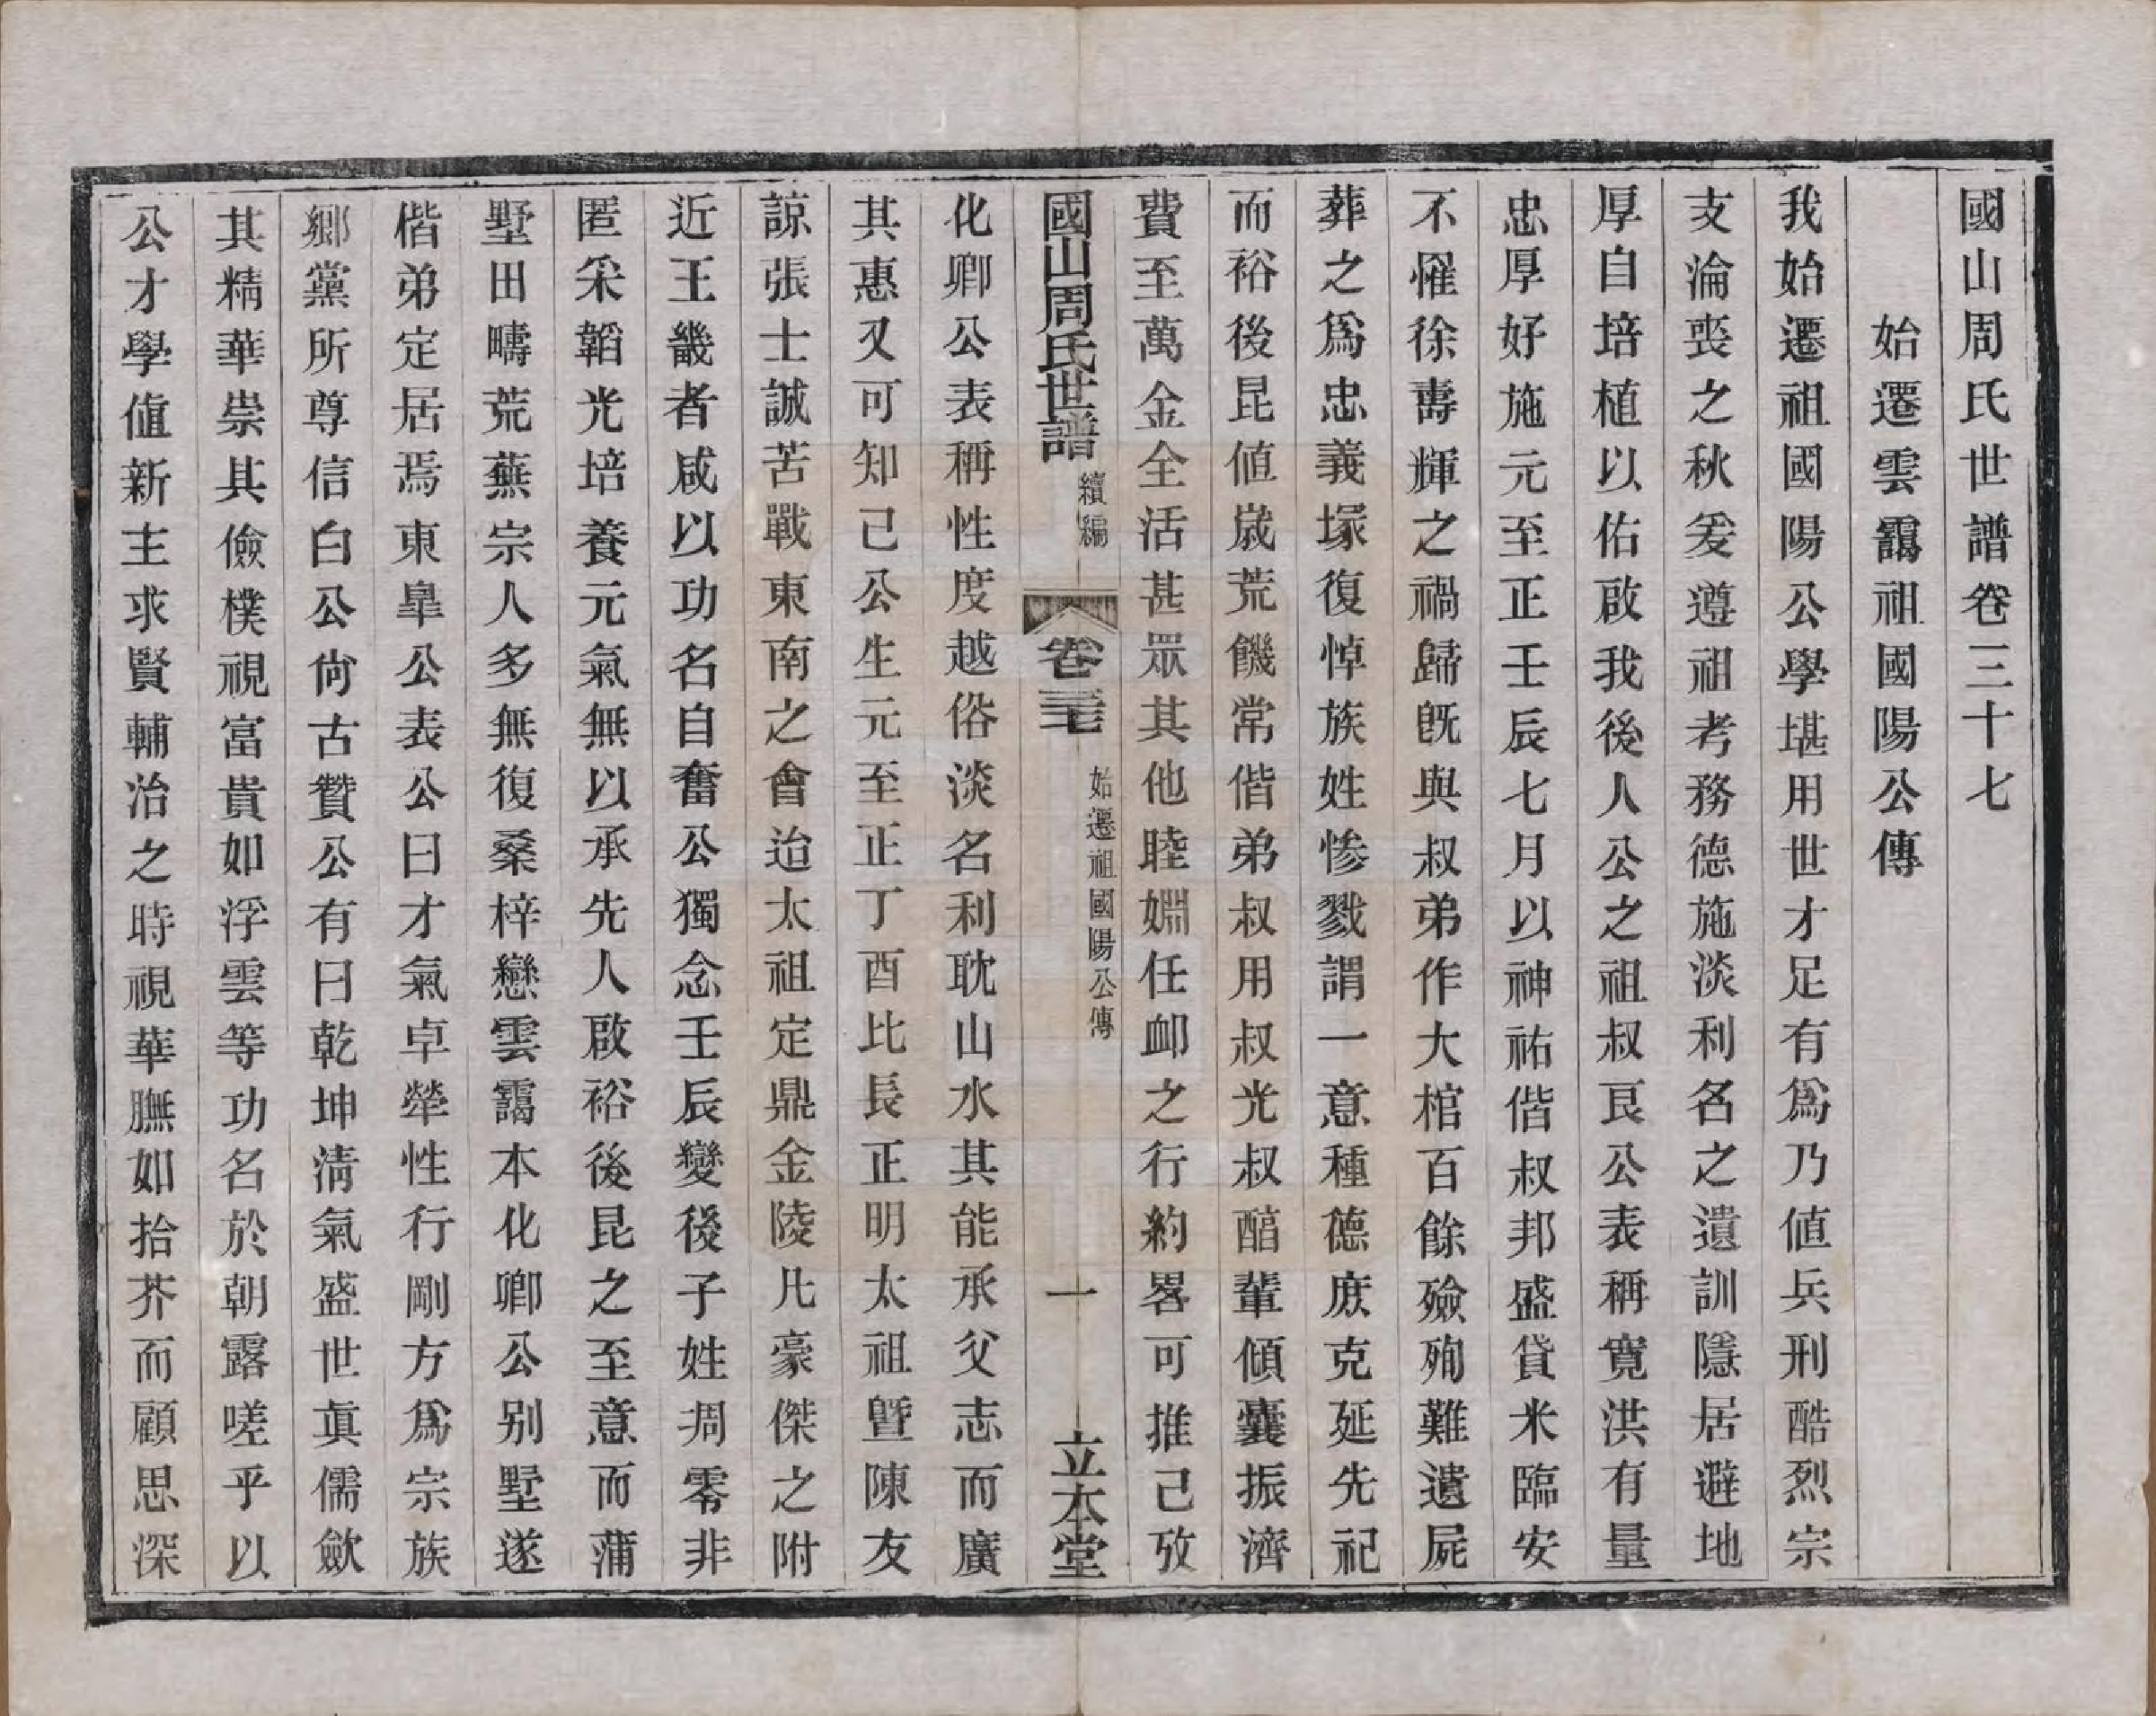 國山周氏世譜卷三十七
始遷雲靄祖國陽公傳
我始遷祖國陽公學堪用世才足有爲乃値兵刑酷烈宗
支淪喪之秋爰遵祖考務德施淡利名之遺訓隱居避地
厚自培植以佑啟我後人公之祖叔艮公表稱寬洪有量
忠厚好施元至正壬辰七月以神祐偕叔邦盛貸米臨安
不罹徐壽輝之禍歸旣與叔弟作大棺百餘殮殉難遺屍
葬之爲忠義塚復悼族姓慘戮謂一意種德庶克延先祀
而裕後昆値嵗荒饑常偕弟叔用叔光叔䣭輩傾囊振濟
費至萬金全活甚眾其他睦婣任卹之行約畧可推己攷
國山周氏世譜 續編 卷三十七 始遷祖國陽公傳 一 立本堂
化卿公表稱性度越俗淡名利耽山水其能承父志而廣
其惠又可知己公生元至正丁酉比長正明太祖曁陳友
諒張士誠苦戰東南之會迨太祖定鼎金陵凡豪傑之附
近王畿者咸以功名自奮公獨念壬辰變後子姓凋零非
匿采韜光培養元氣無以承先人啟裕後昆之至意而蒲
墅田疇荒蕪宗人多無復桑梓戀雲靄本化卿公别墅遂
偕弟定居焉東臯公表公曰才氣卓犖性行剛方爲宗族
鄉黨所尊信白公尙古贊公有曰乾坤淸氣盛世眞儒斂
其精華崇其儉樸視富貴如浮雲等功名於朝露嗟乎以
公才學値新主求賢輔治之時視華膴如拾芥而顧思深